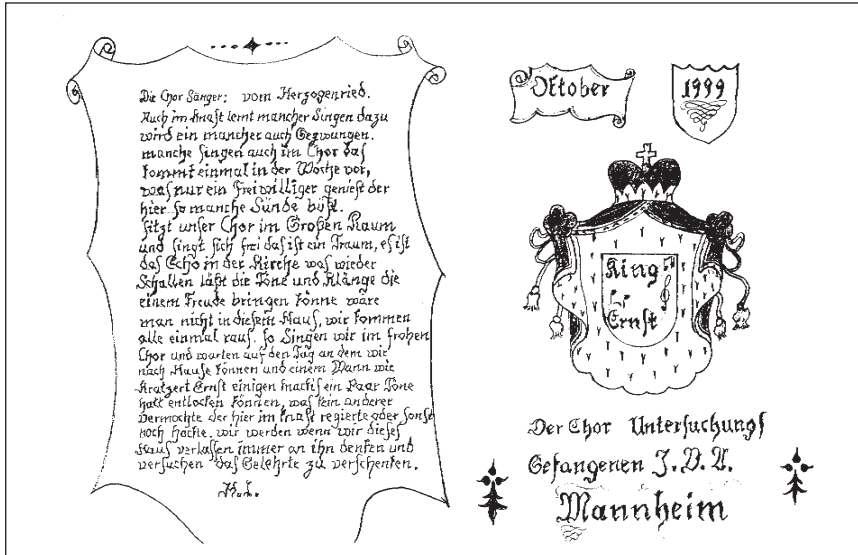 Die Chor Sänger: vom Herzogenried.
Auch im Knast lernt mancher Singen dazu
wird ein mancher auch Gezwungen.
manche Singen auch im Chor das
kommt einmal in der Woche vor,
was nur ein Freiwilliger genießt der
hier so manche Sünde büßt.
sitzt unser Chor im Großen Raum
und singt sich frei das ist ein Traum, es ist
das Echo in der Kirche was wieder
Schallen läßt die Töne und Klänge die
einem Freude bringen könne wäre
man nicht in diesem Haus, wir kommen
alle einmal raus. so Singen wir im frohen
Chor und warten auf den Tag an dem wir
nach Hause können und einem Mann wie
Kratzert Ernst einigen Knackis ein Paar Töne
hatt entlocken können, was kein anderer
vermochte der hier im Knast regierte oder sonst
noch hockte. wir werden wenn wir dieses
Haus verlassen immer an ihn denken und
versuchen das Gelehrte zu verschenken.
Oktober
1999
King
Ernst
Der Chor Untersuchungs
Gefangenen J.V.A.
Mannheim